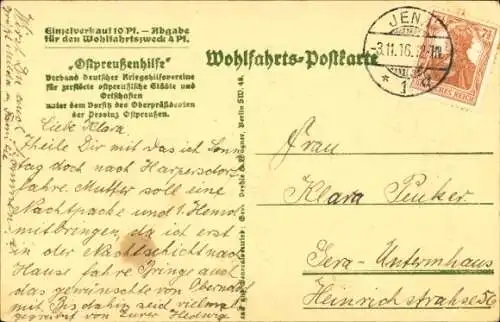 Einzelverkauf 10 Pf. – Abgabe
für den Wohlfahrtszweck 4 Pf.
"Ostpreußenhilfe"
Verband Deutscher Kriegshilfsvereine
für zerstörte ostpreußische Städte und
Ortschaften
unter dem Vorsitz des Oberpräsidenten
der Provinz Ostpreußen.
Liebe Klara.
Theile Dir mit das ich Sonn
tag doch nach Harpersdorf
fahre. Mutter soll eine
Nachtjacke und 1. Hemd
mitbringen, da ich erst
in der Nachtschicht nach
Hause fahre. Bringe auch
das gewünschte von
mit. Bis dahin seid vielmals
gegrüßt von Eurer Hedwig
Wohlfahrts-Postkarte
JENA
-3.11.16.
* 1 d
7½
DEUTSCHES REICH
Frau
Klara
Gera-Untermhaus
Heinrichstrahse 56
Berlin SW. 48.